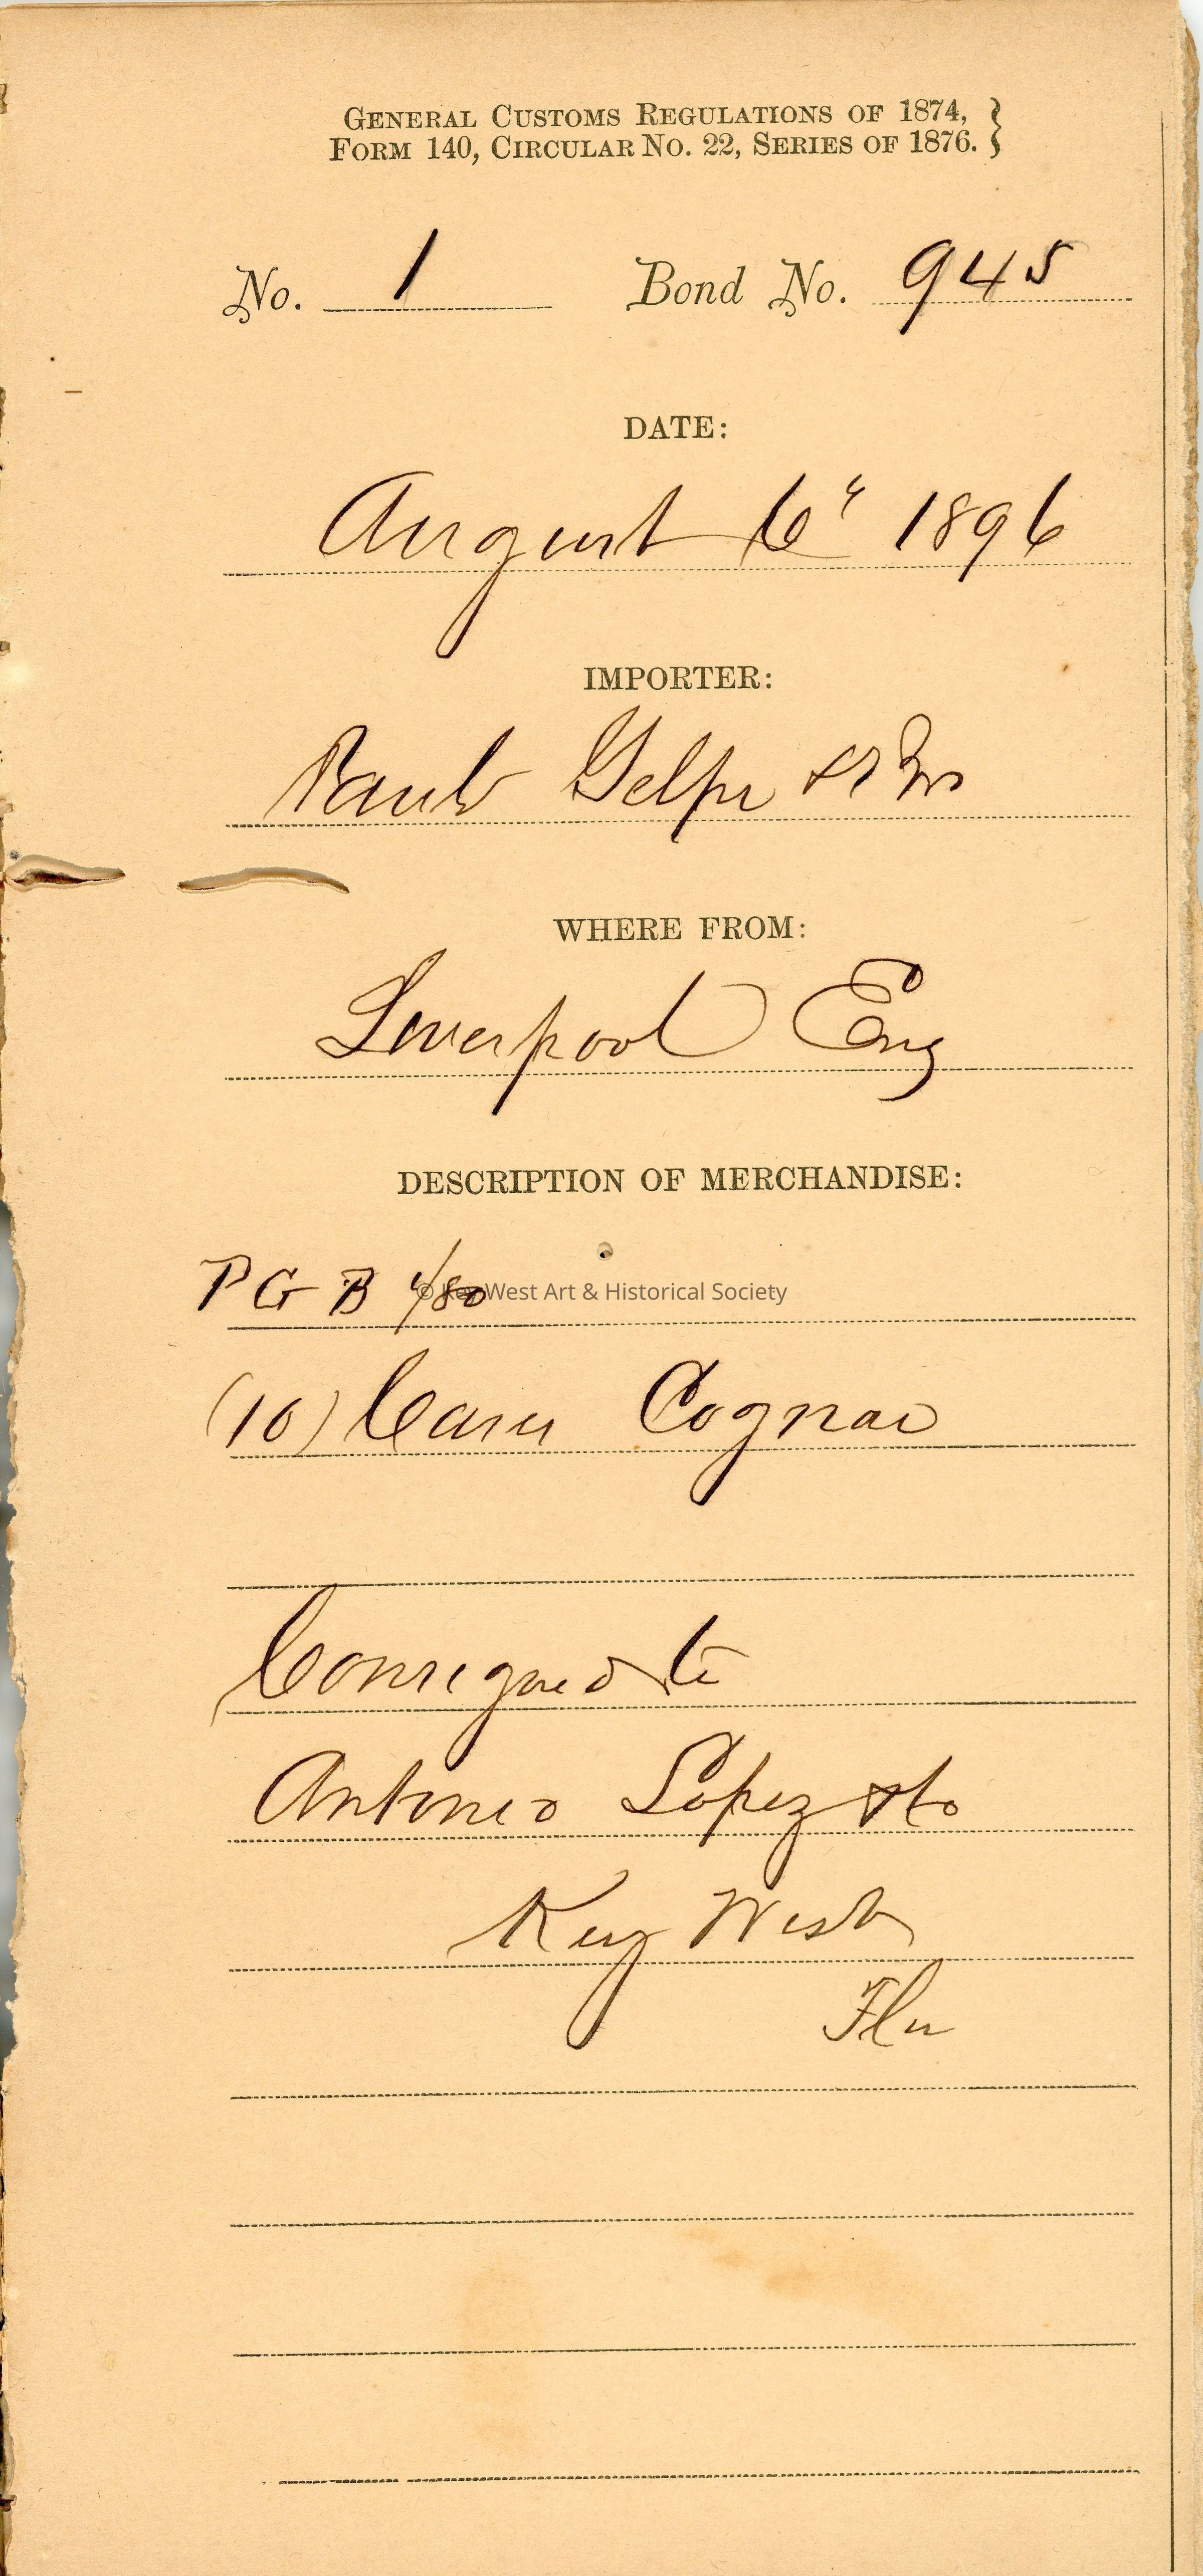 GENERAL CUSTOMS REGULATIONS OF 1874,
FORM 140, CIRCULAR NO. 22, SERIES OF 1876. }
No. 1 Bond No. 945
DATE:
August 6" 1896
IMPORTER:
Paul Gelpi & Bro
WHERE FROM:
Liverpool Eng
DESCRIPTION OF MERCHANDISE:
P G B /80
© Key West Art & Historical Society
(10) Cases Cognac
Consigned to
Antonio Lopez & Co
Key West
Fla